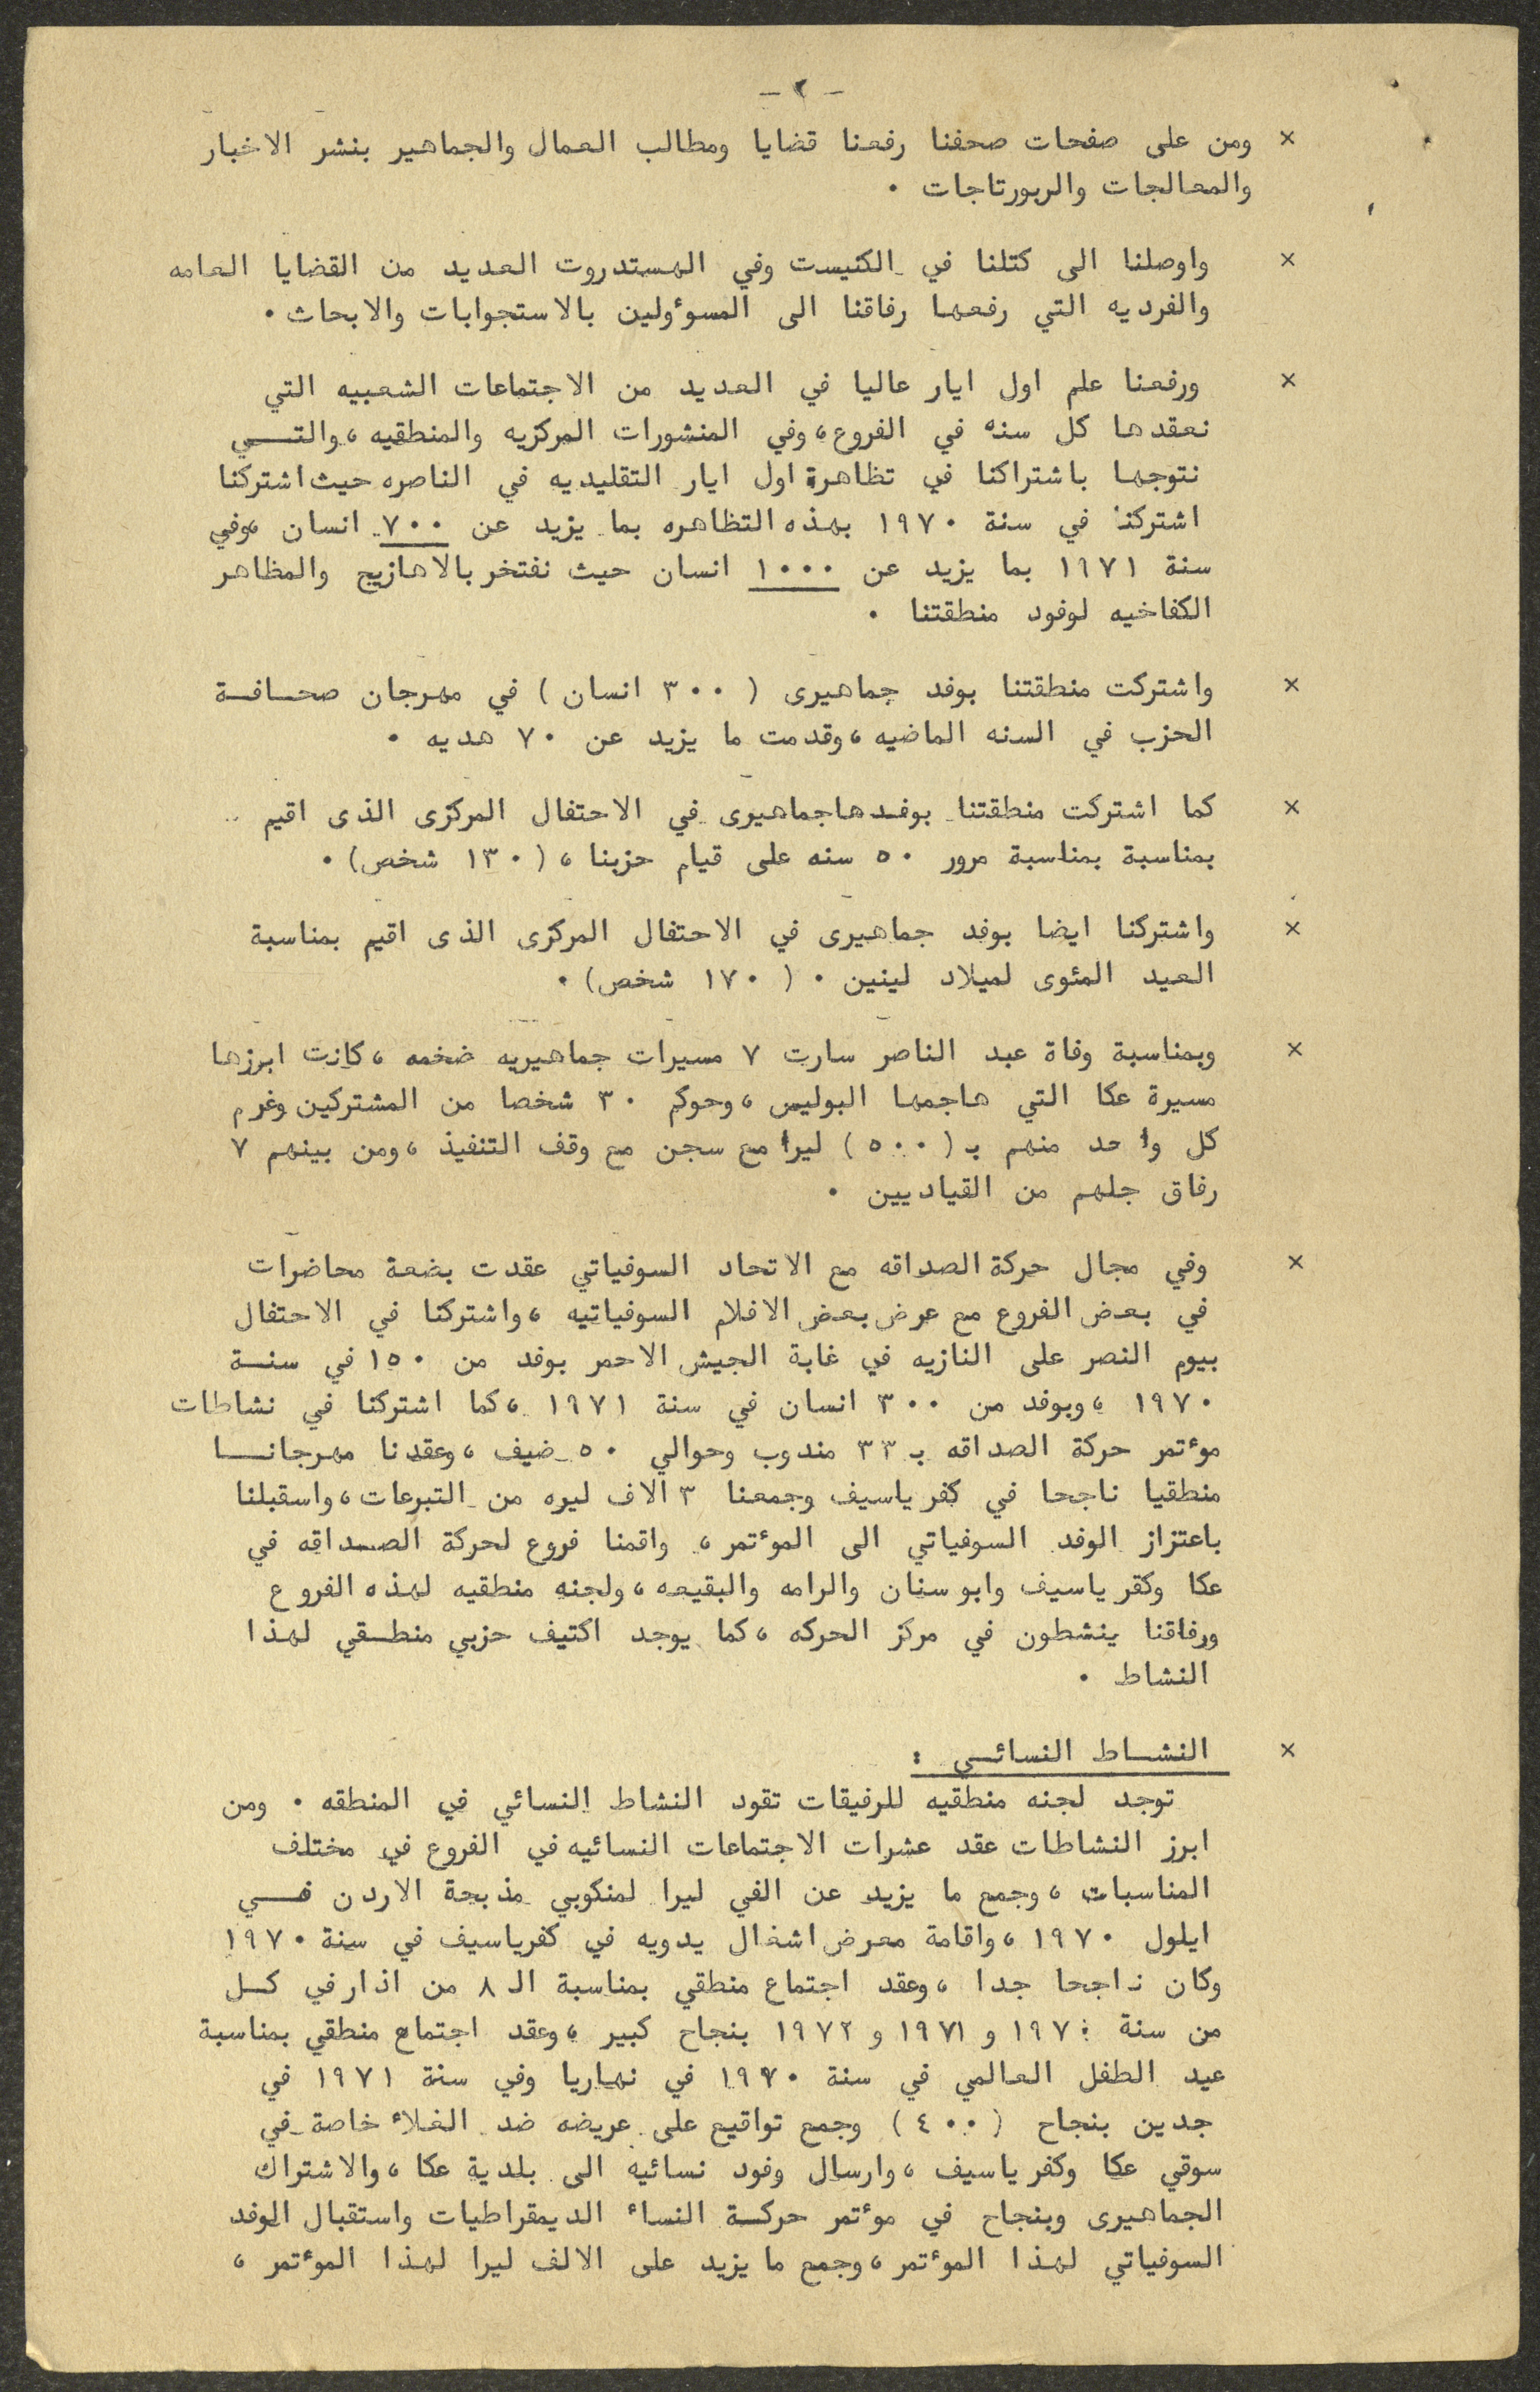 - ٢ -
× ومن على صفحات صحفنا رفعنا قضايا ومطالب العمال والجماهير بنشر الاخبار
والمعالجات والربورتاجات ٠
× واوصلنا الى كتلنا في الكنيست وفي الهستدروت العديد من القضايا العامه
والفرديه التي رفعها رفاقنا الى المسوٴولين بالاستجوابات والابحاث ٠
× ورفعنا علم اول ايار عاليا في العديد من الاجتماعات الشعبيه التي
نعقدها كل سنه في الفروع ، وفي المنشورات المركزيه والمنطقيه ، والتــي
نتوجها باشتراكنا في تظاهرة اول ايار التقليديه في الناصره حيث اشتركنا
اشتركنا في سنة ١٩٧٠ بهذه التظاهره بما يزيد عن ٧٠٠ انسان ،وفي
سنة ١٩٧١ بما يزيد عن ١٠٠٠ انسان حيث نفتخر بالاهازيج والمظاهر
الكفاخيه لوفود منطقتنا ٠
× واشتركت منطقتنا بوفد جماهيرى ( ٣٠٠ انسان ) في مهرجان صحـافـة
الحزب في السنه الماضيه ، وقدمت ما يزيد عن ٧٠ هديه ٠
× كما اشتركت منطقتنا بوفـدها جماهيرى في الاحتفال المركزى الذى اقيم
بمناسبة بمناسبة مرور ٥٠ سنه على قيام حزبنا ، ( ١٣٠ شخص ) ٠
× واشتركنا ايضا بوفد جماهيرى في الاحتفال المركزى الذى اقيم بمناسبة
العيد المئوى لميلاد لينين ٠ ( ١٧٠ شخص ) ٠
× وبمناسبة وفاة عبد الناصر سارت ٧ مسيرات جماهيريه ضخمه ، كانت ابرزها
مسيرة عكا التي هاجمها البوليس ، وحوكم ٣٠ شخصا من المشتركين وغرم
كل واحد منهم بـ ( ٥٠٠ ) ليرا مع سجن مع وقف التنفيذ ، ومن بينهم ٧
رفاق جلهم من القياديين ٠
× وفي مجال حركة الصداقه مع الاتحاد السوفياتي عقدت بضعة محاضرات
في بعض الفروع مع عرض بعض الافلام السوفياتيه ، واشتركنا في الاحتفال
بيوم النصر على النازيه في غابة الجيش الاحمر بوفد من ١٥٠ في سنـة
١٩٧٠ ، وبوفد من ٣٠٠ انسان في سنة ١٩٧١ ، كما اشتركنا في نشاطات
موٴتمر حركة الصداقه بـ ٣٣ مندوب وحوالي ٥٠ ضيف ، وعقدنا مهرجانـا
منطقيا ناجحا في كفر ياسيف وجمعنا ٣ الاف ليره من التبرعات ، واسقبلنا
باعتزاز الوفد السوفياتي الى الموٴتمر ، واقمنا فروع لحركة الصـداقه في
عكا وكفر ياسيف وابو سنان والرامه والبقيعه ، ولجنه منطقيه لهذه الفروع
ورفاقنا ينشطون في مركز الحركه ، كما يوجد اكتيف حزبي منطـقي لهذا
النشاط ٠
× النشـاط النسائـي :
توجد لجنه منطقيه للرفيقات تقود النشاط النسائي في المنطقه ٠ ومن
ابرز النشاطات عقد عشرات الاجتماعات النسائيه في الفروع في مختلف
المناسبات ، وجمع ما يزيد عن الفي ليرا لمنكوبي مذبحة الاردن فــي
ايلول ١٩٧٠ ، واقامة معرض اشغال يدويه في كفرياسيف في سنة ١٩٧٠
وكان ناجحا جدا ، وعقد اجتماع منطقي بمناسبة الـ ٨ من اذار في كـل
من سنة ١٩٧٠ و ١٩٧١ و ١٩٧٢ بنجاح كبير ، وعقد اجتماع منطقي بمناسبة
عيد الطفل العالمي في سنة ١٩٧٠ في نهاريا وفي سنة ١٩٧١ في
جدين بنجاح ( ٤٠٠ ) وجمع تواقيع على عريضه ضد الغلاٴ خاصة في
سوقي عكا وكفر ياسيف ، وارسال وفود نسائيه الى بلدية عكا ، والاشتراك
الجماهيرى وبنجاح في موٴتمر حركـة النساٴ الديمقراطيات واستقبال الوفد
السوفياتي لهذا الموٴتمر ، وجمع ما يزيد على الالف ليرا لهذا الموٴتمر ،